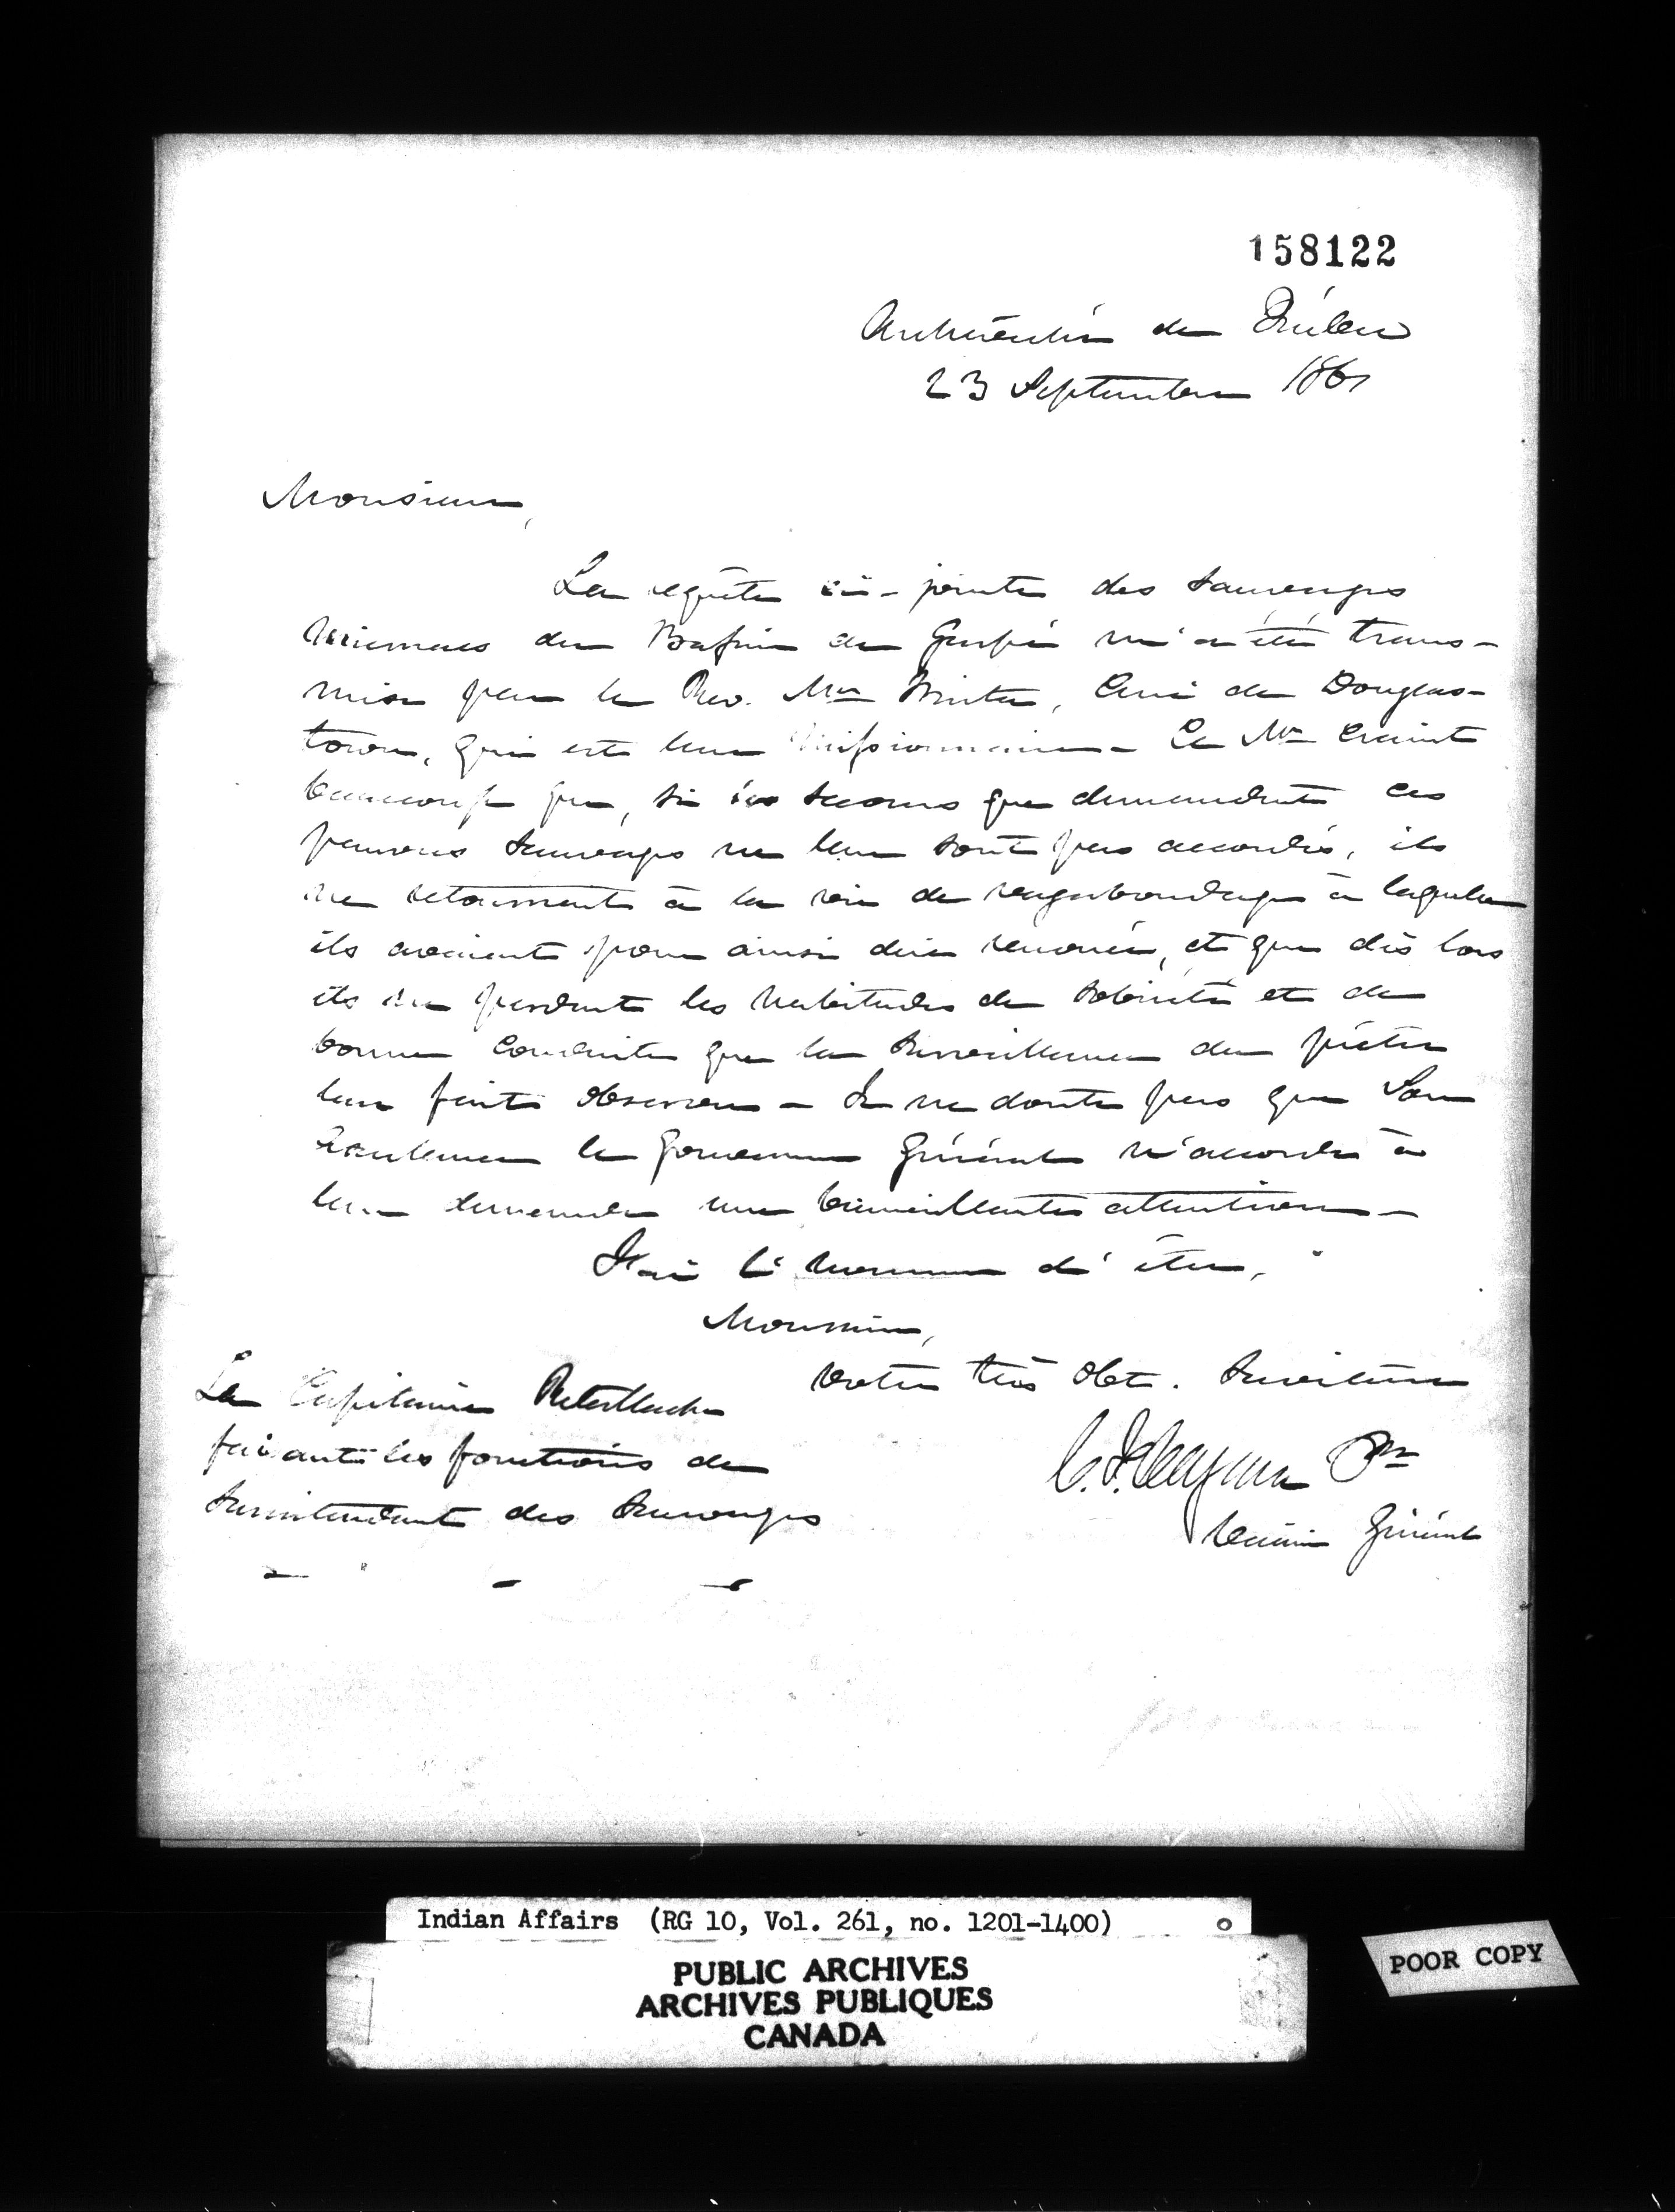 158122
Archevêché de Québec
23 Septembre 1861
Monsieur,
La requête ci-jointe des Sauvages
Micmacs du Bassin de Gaspé m'a été trans-
mise par le Rev. Mr Winter, Curé de Douglas-
town, qui est leur Missionnaire - Ce Mr craint
beaucoup que, si les secours que demandent ces
pauvres Sauvages ne leur sont pas accordés, ils
ne retournent à la vie de vagabondage à laquelle
ils avaient pour ainsi dire renoncé, et que dès lors
ils ne perdent les habitudes de sobriété et de
bonne conduite que la surveillance du prêtre
leur fait observer - Je ne doute pas que Son
Excellence le Gouverneur Général n'accorde à
leur demande une bienveillante attention -
J'ai l'honneur d'être,
Monsieur,
Votre très Obt. Serviteur
C. F. Cazeau Ptre
Vicaire Général
Le Capitaine
faisant les fonctions de
Surintendant des Sauvages
Indian Affairs (RG 10, Vol. 261, no. 1201-1400)
PUBLIC ARCHIVES
ARCHIVES PUBLIQUES
CANADA
POOR COPY